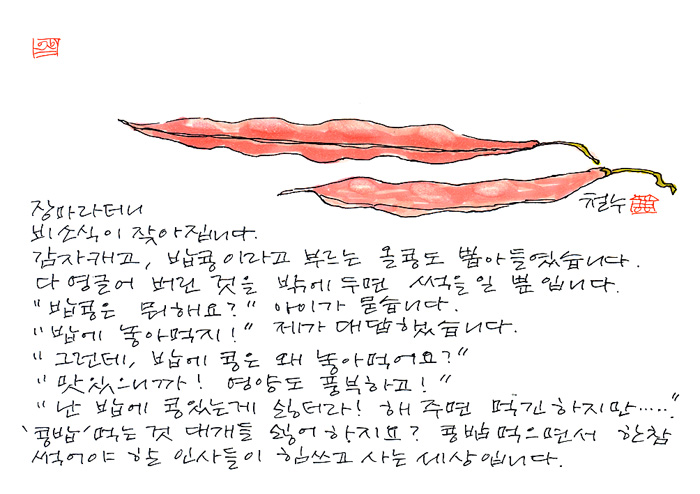 철수
장마라더니
비소식이 잦아집니다.
감자캐고, 밥콩이라고 부르는 올콩도 뽑아들였습니다.
다 영글어 버린 것을 밖에 두면 썩을 일 뿐입니다.
"밥콩은 뭐해요?" 아이가 묻습니다.
"밥에 놓아먹지!" 제가 대답했습니다.
"그런데, 밥에 콩은 왜 놓아먹어요?"
"맛있으니까! 영양도 풍부하고!"
"난 밥에 콩있는게 싫더라! 해 주면 먹긴 하지만....."
'콩밥' 먹는 것 대개들 싫어 하지요? 콩밥먹으면서 한참
썩어야 할 인사들이 힘쓰고 사는 세상입니다.